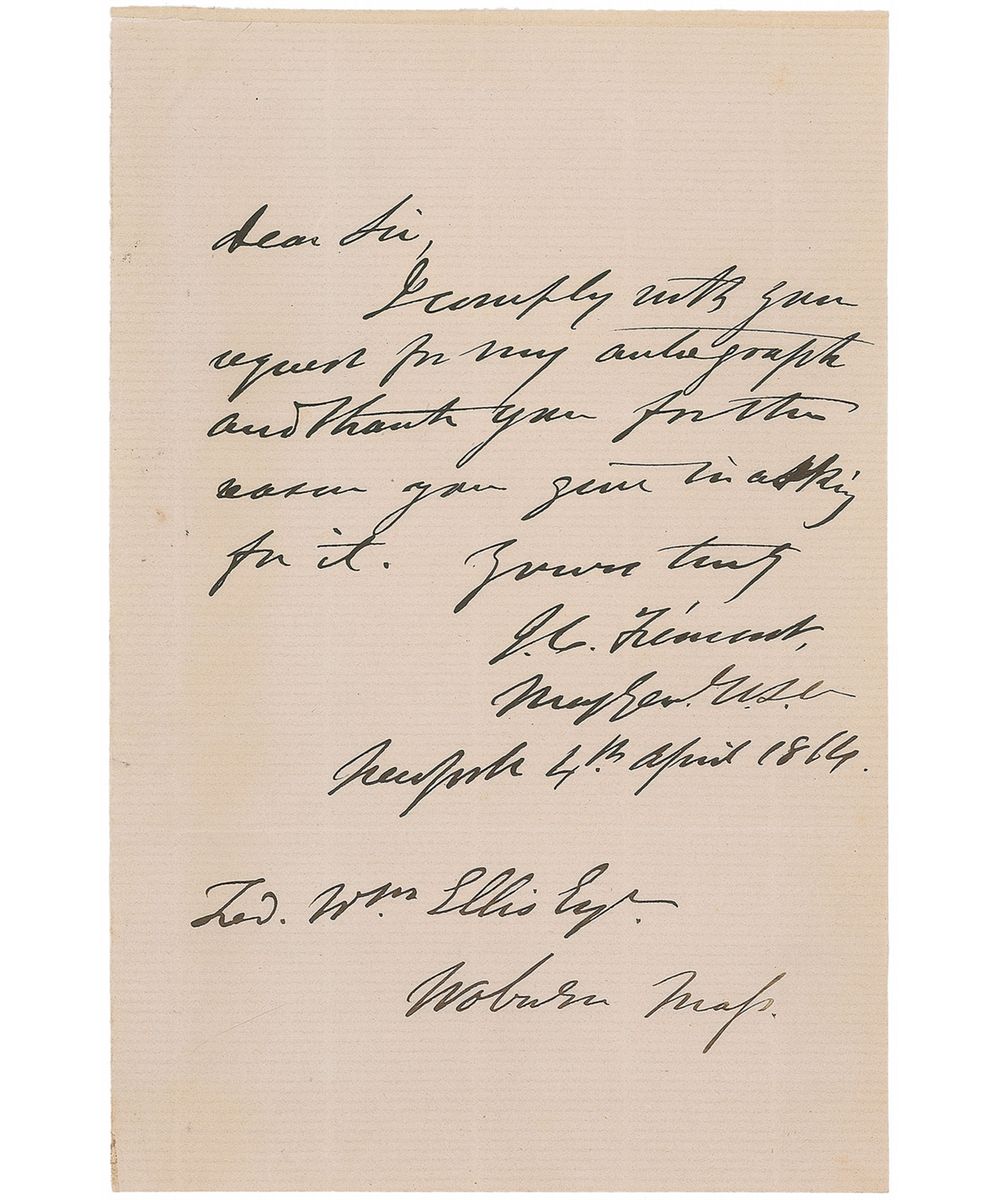 Dear Sir,
I comply with your
request for my autograph
and thank you for the
reason you give in asking
for it. Yours truly
J.C. Frémont,
Maj Genl. U.S.A
New York 4th April 1864.
Fred. Wm Ellis Esqr.
Woburn Mass.